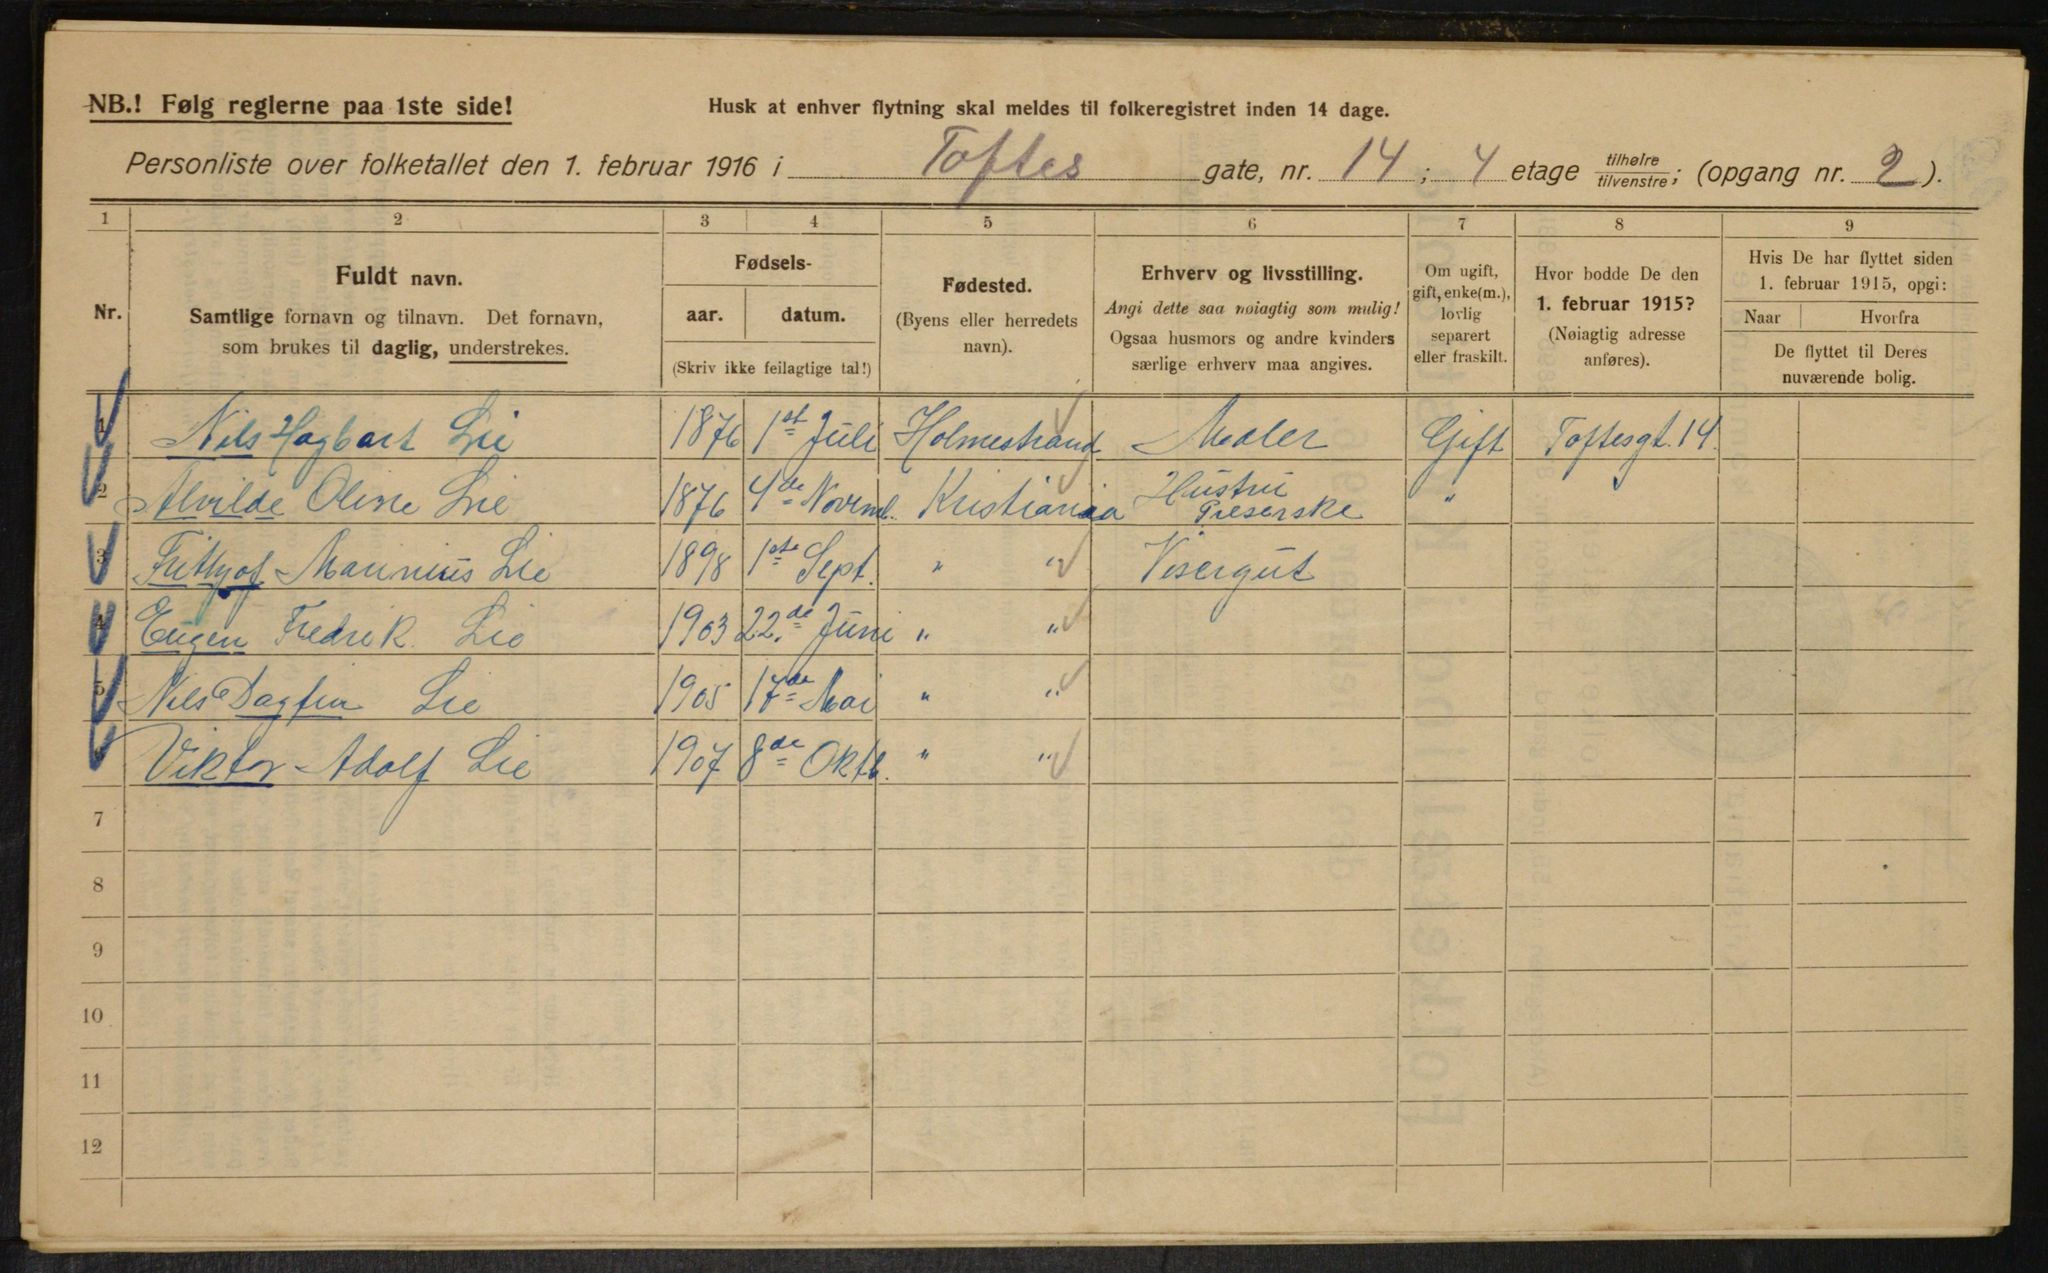 NB.! Følg reglerne paa 1ste side!
Husk at enhver flytning skal meldes til folkeregistret inden 14 dage.
Personliste over folketallet den 1. februar 1916 i Toftes gate, nr. 14; 4 etage tilhøire/tilvenstre; (opgang nr. 2).
1 2 3 4 5 6 7 8 9
Nr.
Fuldt navn.
Samtlige fornavn og tilnavn. Det fornavn,
som brukes til daglig, understrekes.
Fødsels-
aar. datum.
(Skriv ikke feilagtige tal!)
Fødested.
(Byens eller herredets
navn).
Erhverv og livsstilling.
Angi dette saa nøiagtig som mulig!
Ogsaa husmors og andre kvinders
særlige erhverv maa angives.
Om ugift,
gift, enke(m.),
lovlig
separert
eller fraskilt.
Hvor bodde De den
1. februar 1915?
(Nøiagtig adresse
anføres).
Hvis De har flyttet siden
1. februar 1915, opgi:
Naar Hvorfra
De flyttet til Deres
nuværende bolig.
1 Nils Hagbart Lie 1876 1st Juli Holmestrand Maler Gift Toftesgt. 14.
2 Alvilde Oline Lie 1876 4de Novemb. Kristiania Hustru "
Preserske
3 Frithjof Marinius Lie 1898 1ste Sept. " " Visergut
4 Eugen Fredrik. Lie 1903 22.de Juni " "
5 Nils Dagfin Lie 1905 17de Mai " "
Viktor Adolf Lie 1907 8de Oktb. " "
7
8
9
10
11
12